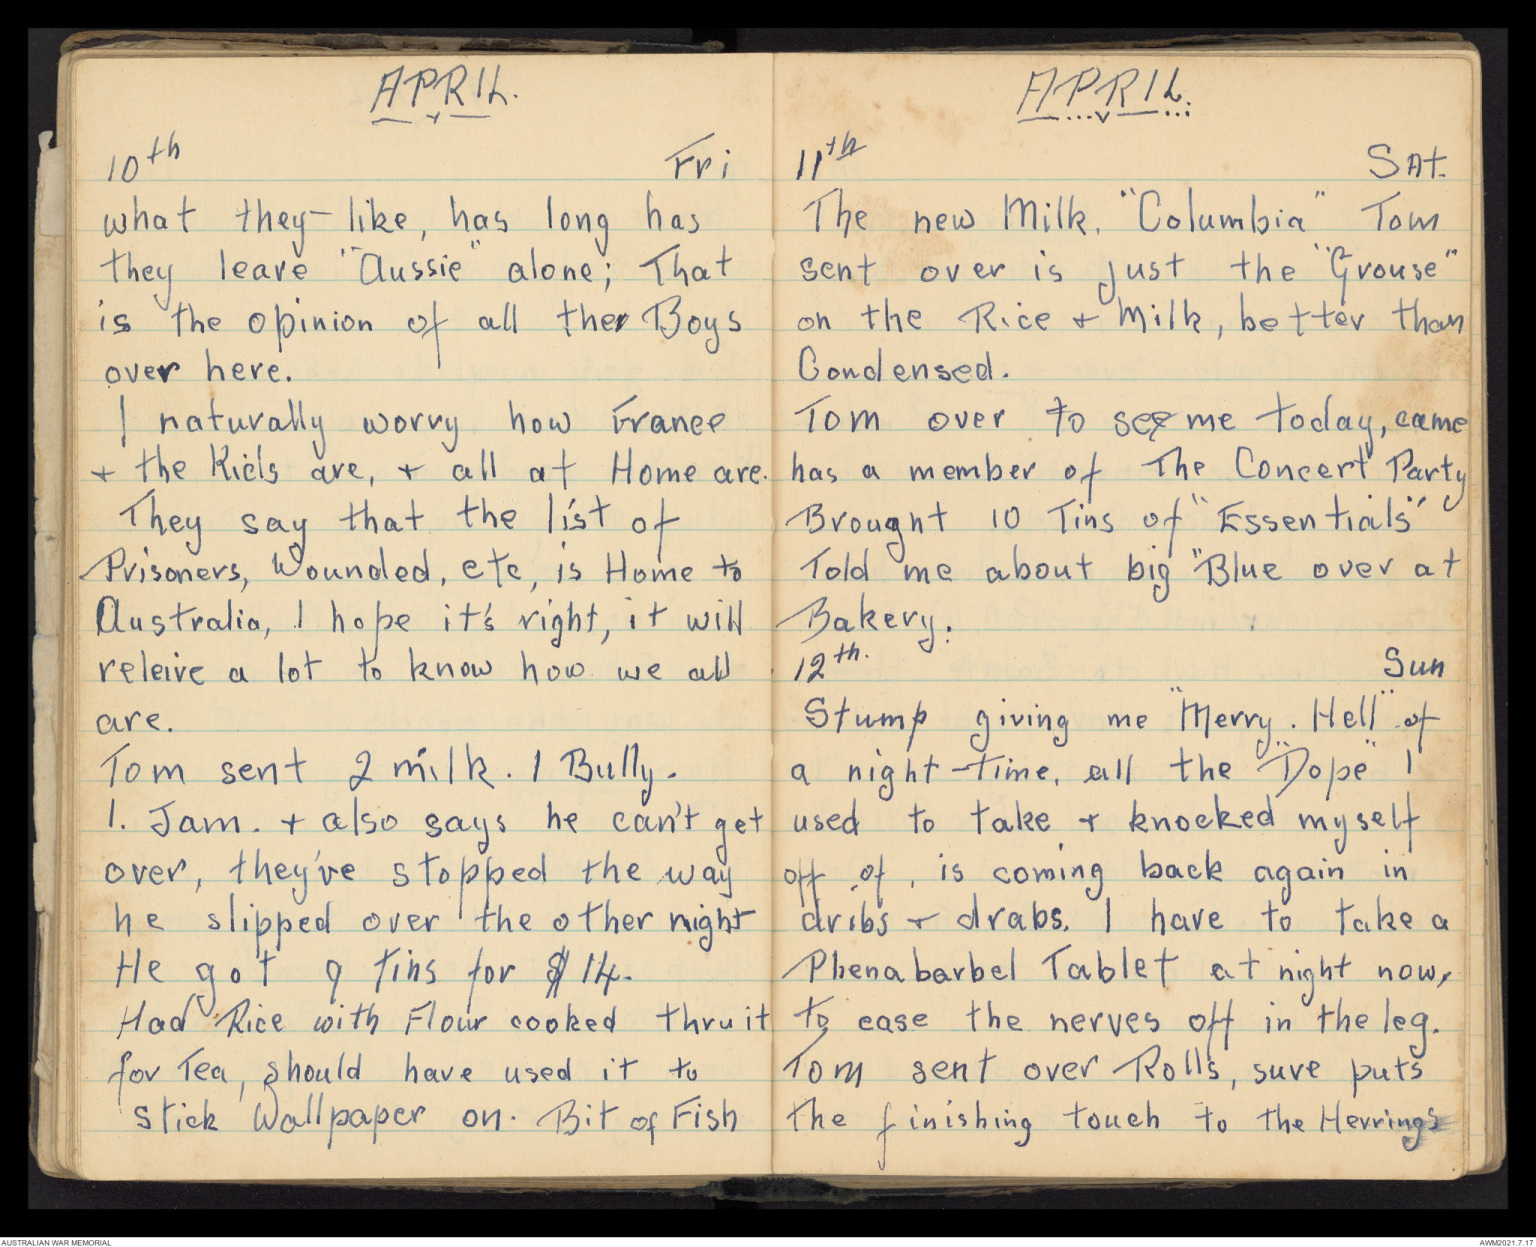 APRIL.
10th Fri
what they like, has long has
they leave "Aussie" alone; That
is the opinion of all ther Boys
over here.
I naturally worry how France
+ the Kids are, + all at Home are.
They say that the list of
Prisoners, Wounded, etc, is Home to
Australia, I hope it's right, it will
releive a lot to know how we all
are.
Tom sent 2 milk. 1 Bully.
1. Jam. + also says he can't get
over, they've stopped the way
he slipped over the other night
He got 9 tins for $14.
Had Rice with Flour cooked thru it
for Tea, should have used it to
stick Wallpaper on. Bit of Fish
APRIL.
11th SAt.
The new Milk, "Columbia" Tom
sent over is just the "Grouse"
on the Rice + Milk, better than
Condensed.
Tom over to see me today, came
has a member of The Concert Party
Brought 10 Tins of "Essentials"
Told me about big "Blue over at
Bakery.
12th. Sun
Stump giving me "Merry. Hell" of
a night-time, all the "Dope" I
used to take + knocked myself
off of, is coming back again in
dribs + drabs. I have to take a
Phenabarbel Tablet at night now,
to ease the nerves off in the leg.
Tom sent over Rolls, sure puts
the finishing touch to the Herrings
AUSTRALIAN WAR MEMORIAL
AWM2021.7.17